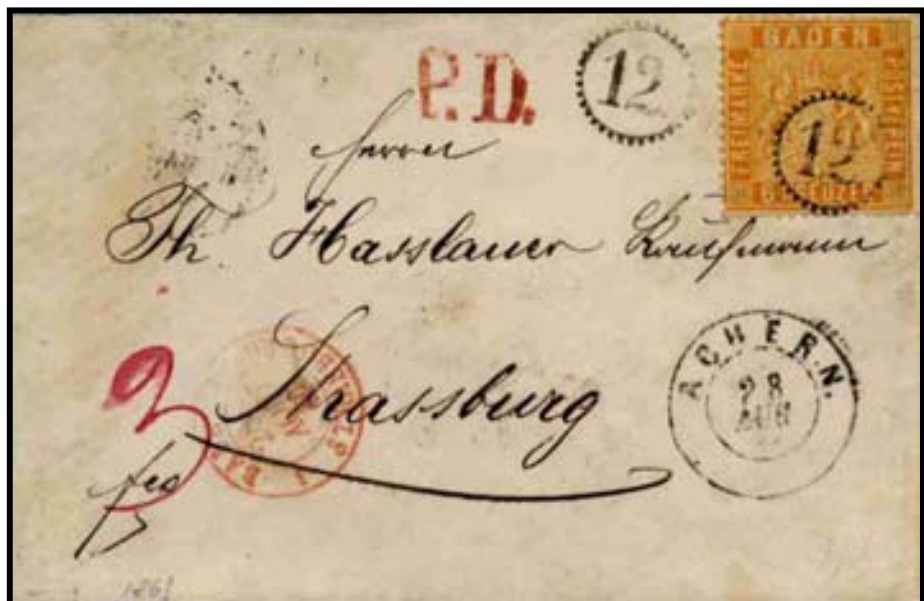 P.D.
12
BADEN
FREIMARKE
12
Herrn
Th. Hasslauer Kaufmann
Strassburg
ACHERN.
28
AUG
fco